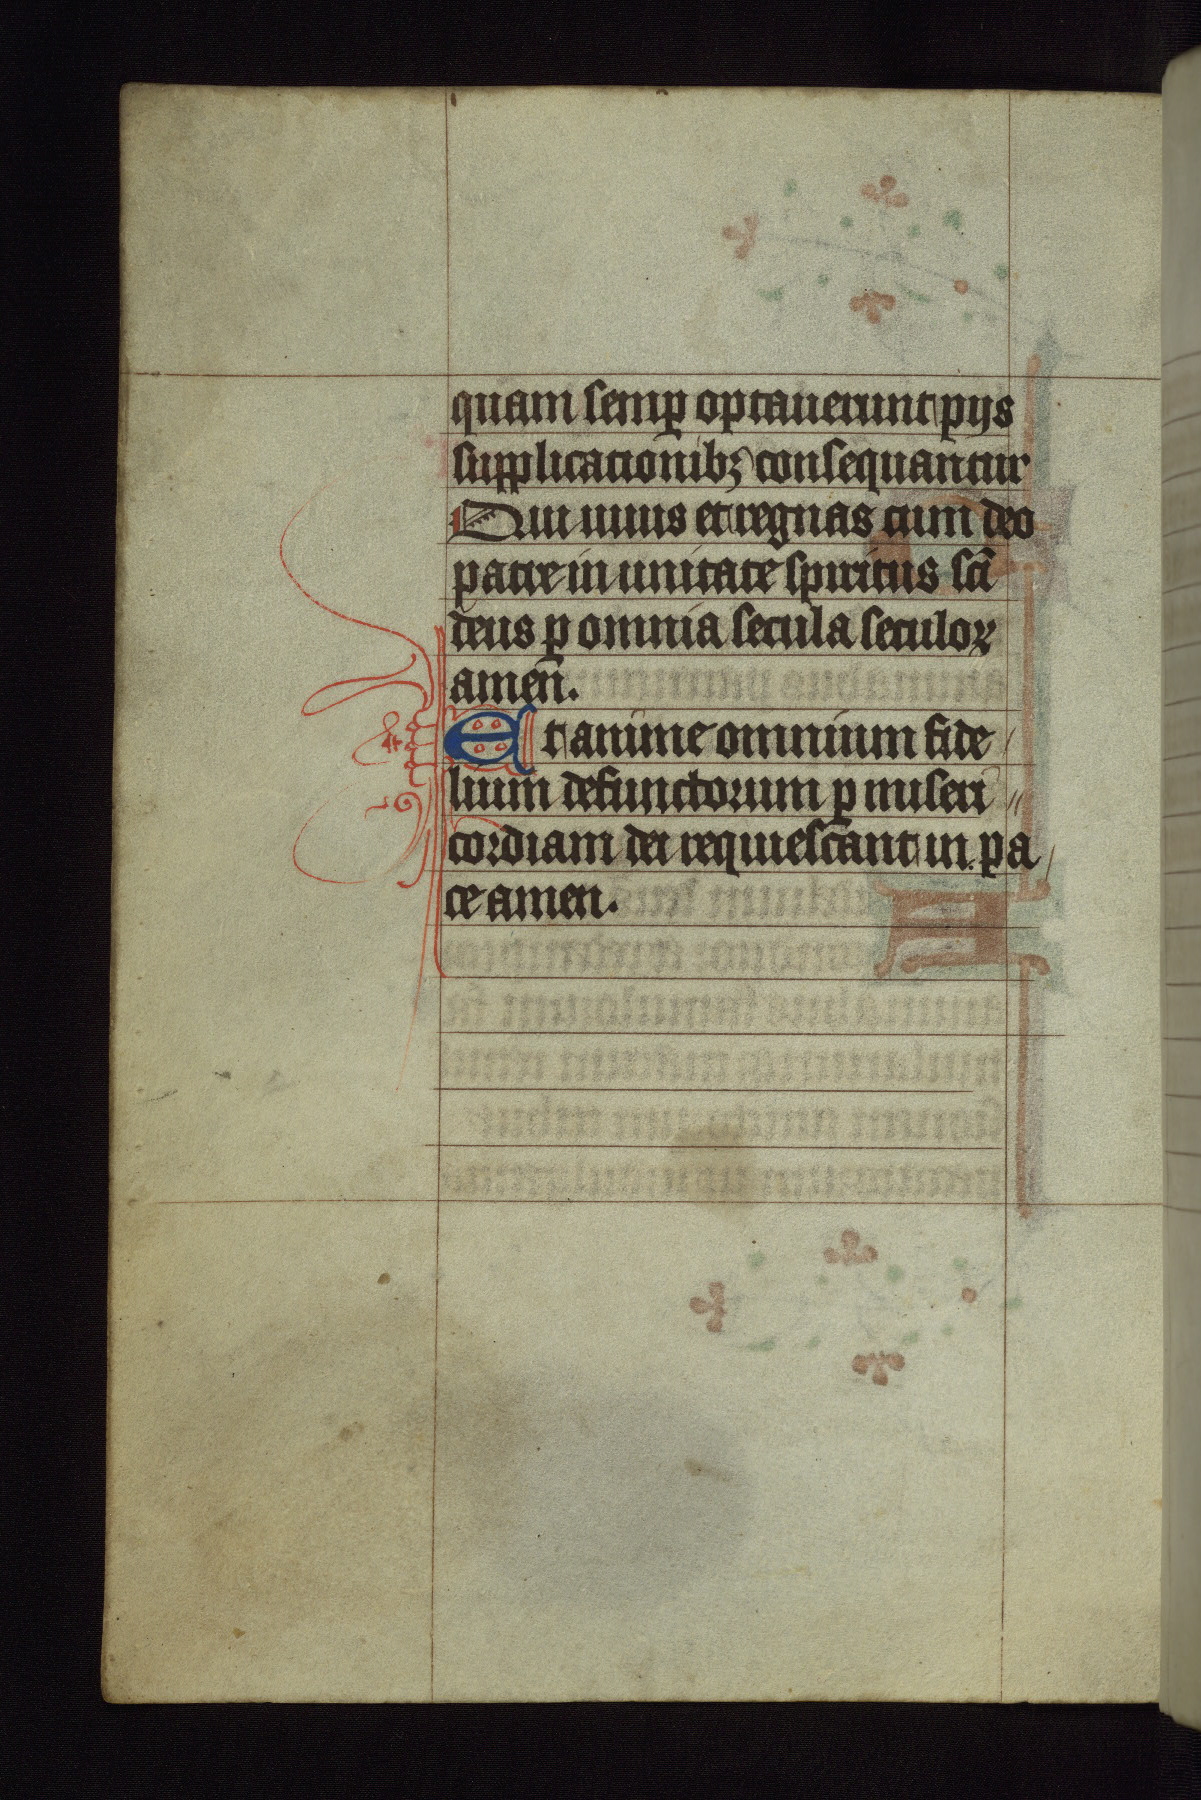 quam semꝑ optauerunt pijs
supplicationibꝫ consequantur
Qui uiuis et regnas cum deo
patre in unitate spiritus sc̄i
deus ꝑ omnia secula seculoꝝ
amen̄.
Et anime omnium fide
lium defunctorum ꝑ miseri
cordiam dei requiescant in pa
ce amen.